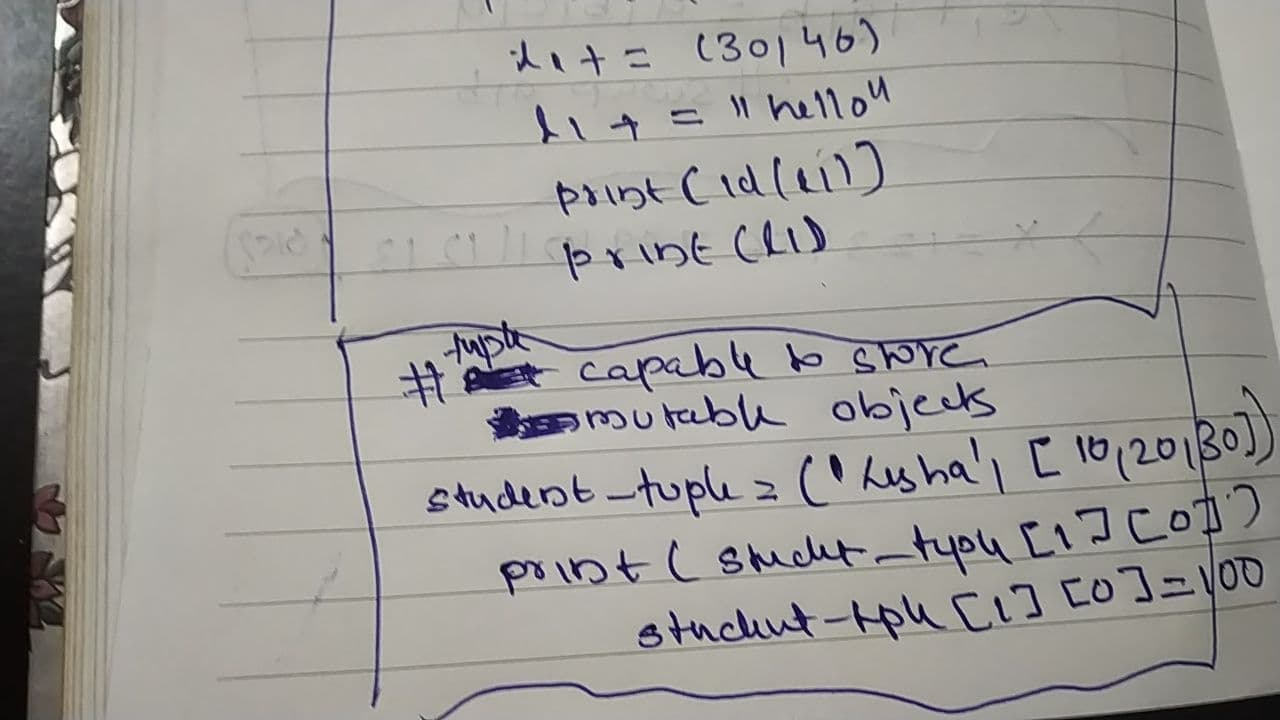 l1 += (30,40)
l1 += "hello"
print(id(l1)]
print(l1)
# tuple capable to store
mutable objects
student_tuple = ('Lesha', [10,20,30])
print( studet_typle [1] [0])
student-tple [1] [0] = 100